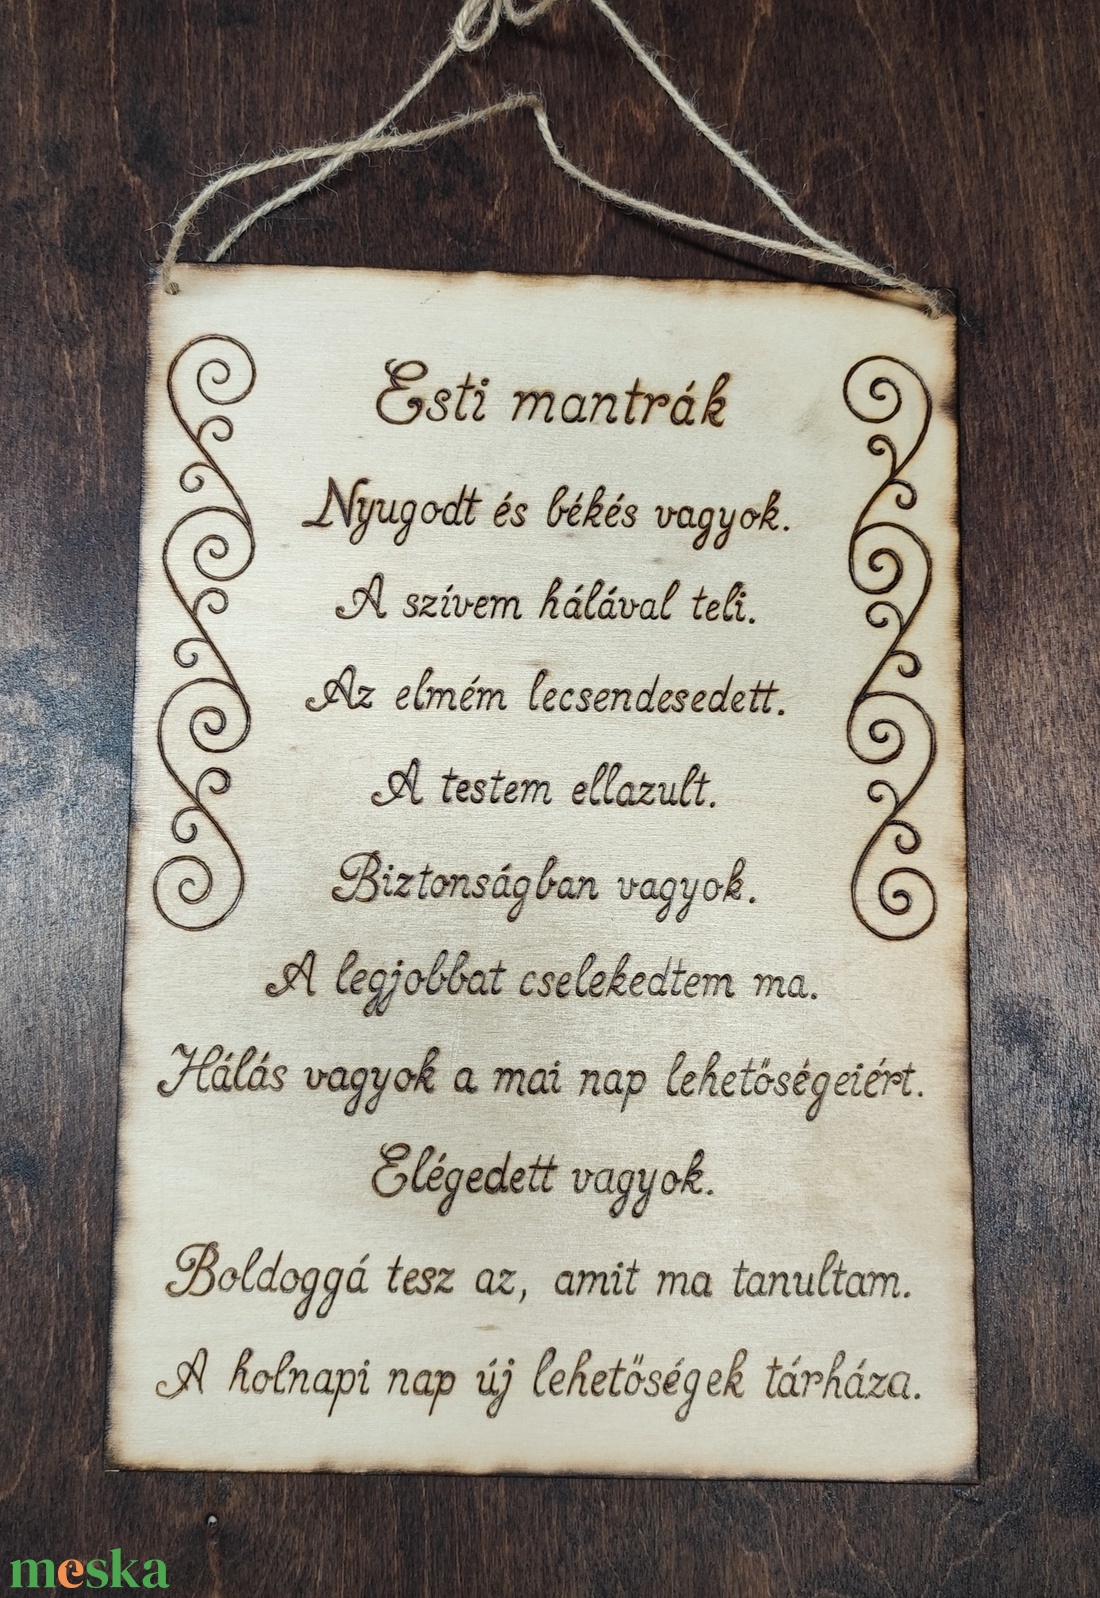 Esti mantrák
Nyugodt és békés vagyok.
A szívem hálával teli.
Az elmém lecsendesedett.
A testem ellazult.
Biztonságban vagyok.
A legjobbat cselekedtem ma.
Hálás vagyok a mai nap lehetőségeiért.
Elégedett vagyok.
Boldoggá tesz az, amit ma tanultam.
A holnapi nap új lehetőségek tárháza.
meska